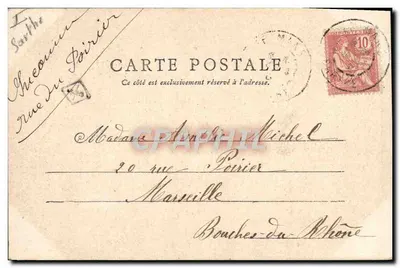 Sarthe
Inconnu
rue du Poirier
CARTE POSTALE
Ce côté est exclusivement réservé à l'adresse.
10
Madame Michel
20 rue Poirier
Marseille
Bouches-du-Rhône